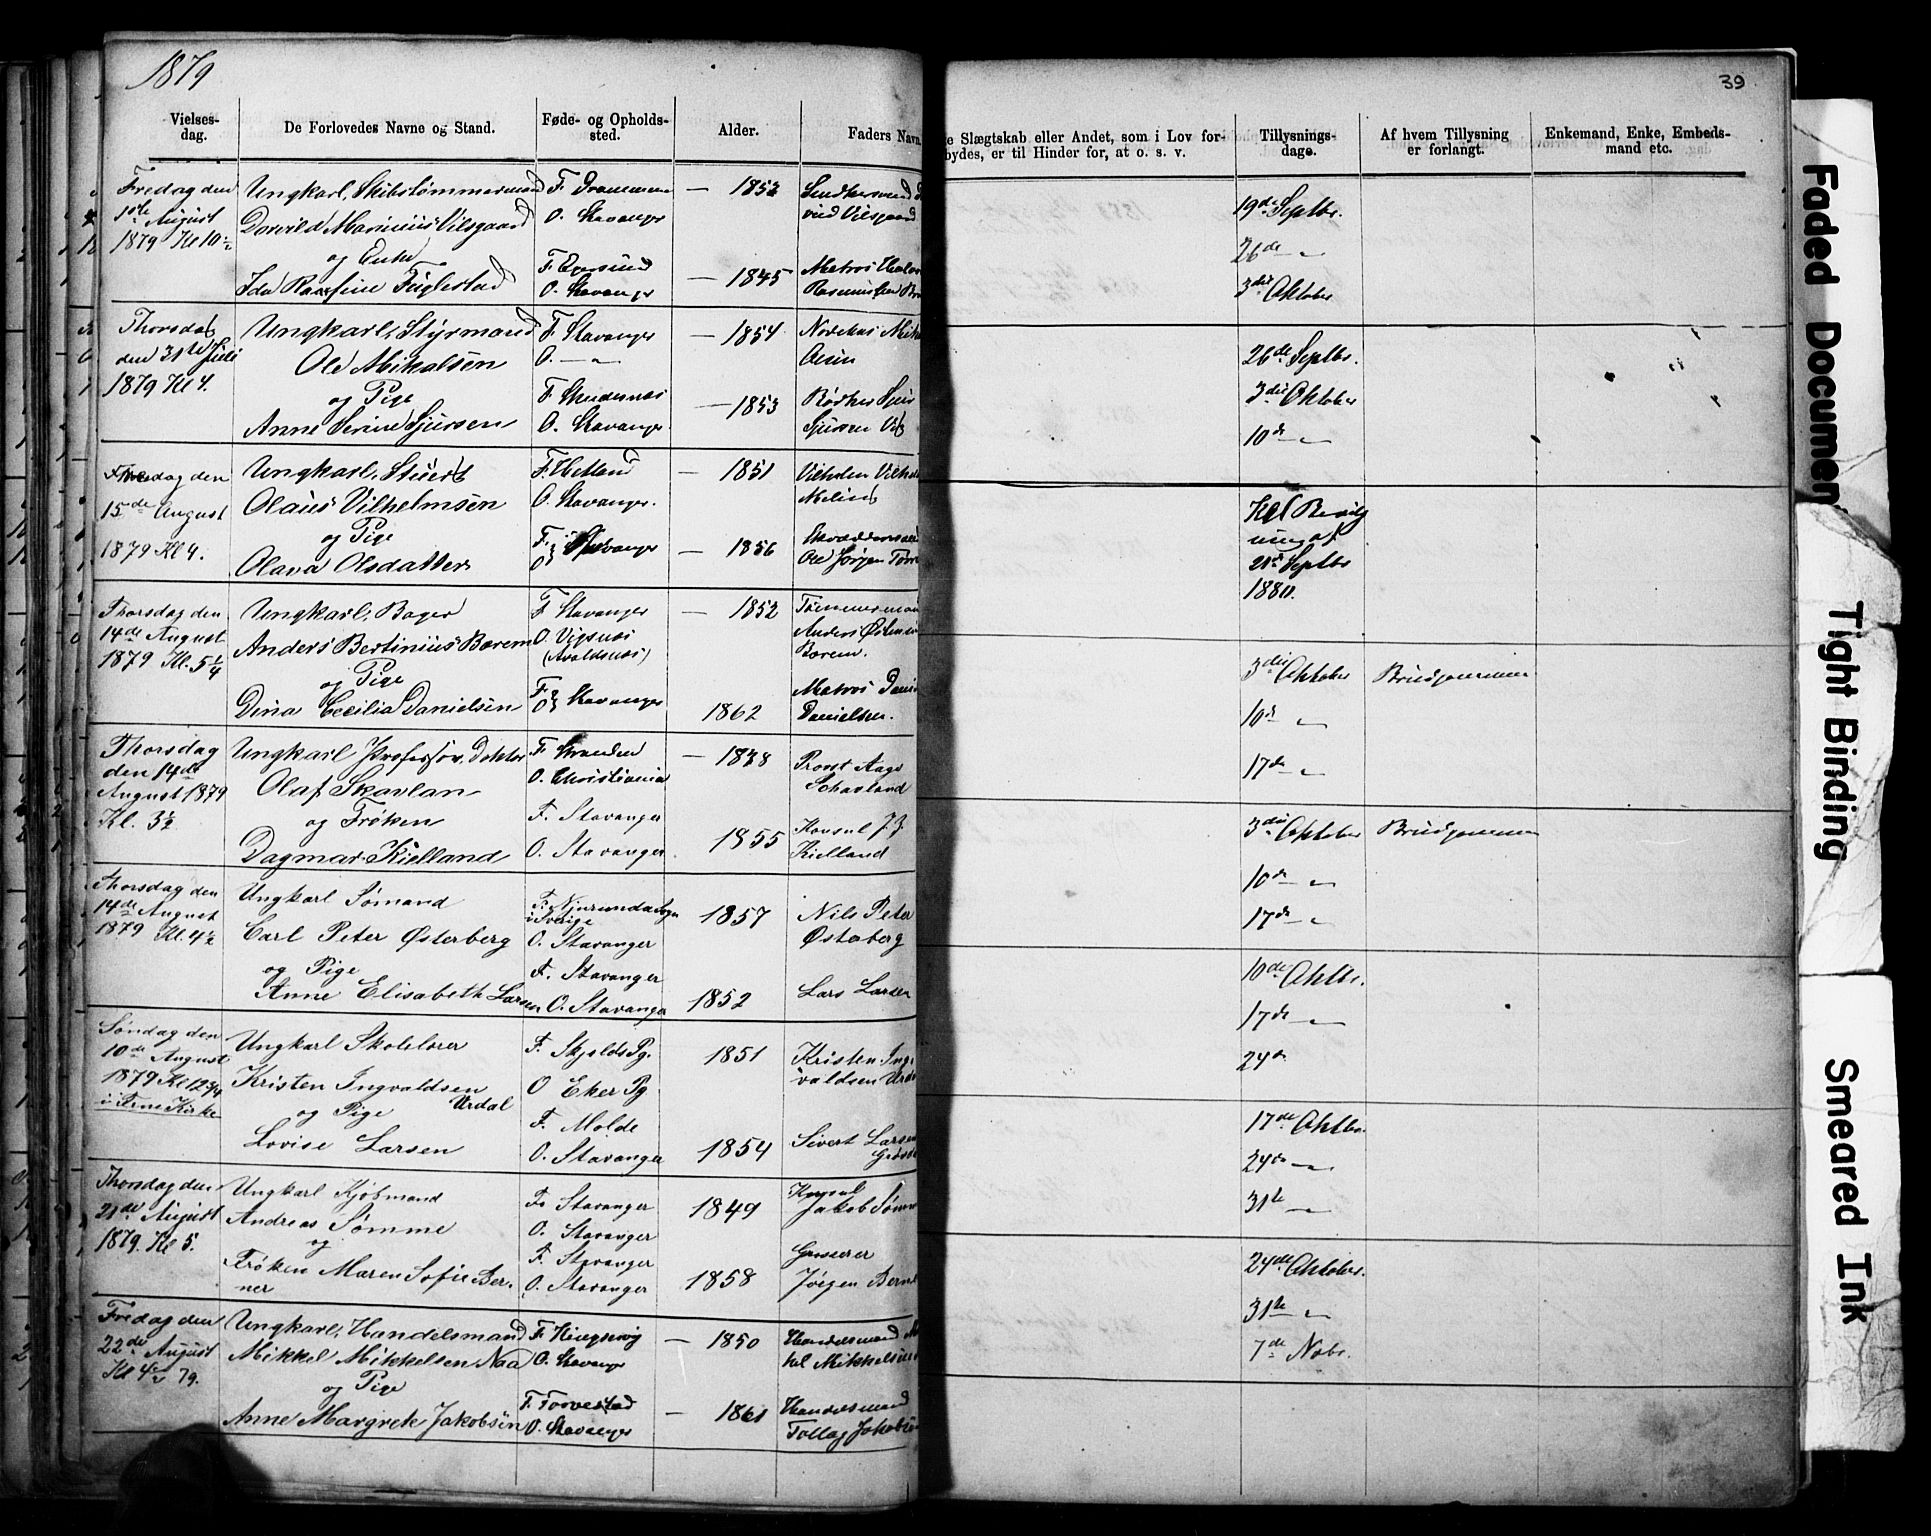 1879
39
Vielses-
dag.
De Forlovedes Navne og Stand.
Føde- og Opholds-
sted.
Alder.
Faders Navn
e Slægtskab eller Andet, som i Lov for-
bydes, er til Hinder for, at o. s. v.
Tillysnings-
dage.
Af hvem Tillysning
er forlangt.
Enkemand, Enke, Embeds-
mand etc.
Fredag den
1ste August
1879 Kl 10½
Ungkarl, Skibstømmermand
Dorvild Marinius Vilsgaard
og Enke
Ida Rasmine Fuglestad
F. Drammen
O. Stavanger
F. Egersund
O. Stavanger
— 1853
— 1845
Matros
Rasmussen
Thorsdag
den 31te Juli
1879 Kl 4.
Ungkarl, Styrmand
Ole Mikalsen
og Pige
Anne Serine Sjursen
F. Stavanger
O. — „
F. Skudesnæs
O. Stavanger
— 1854
— 1853
Bødker Sjur
Sjursen
Fredag den
15de August
1879 Kl 4.
Ungkarl, Stuert
Olaus Vilhelmsen
og Pige
Olava Olsdatter
F. Hetland
O. Stavanger.
F. Stavanger
O
— 1851
— 1856
Vilhelm
Ole Jørgen
Thorsdag den
14de August
1879 Kl. 5¼
Ungkarl, Bager
Anders Bertinius Borem
og Pige
Dina Cecilia Danielsen
F Stavanger
O. Vigsnæs
(Avaldsnæs)
F. Stavanger
O
— 1852
1862
Tømmermand
Anders
Borem.
Matros
Danielsen.
Thorsdag
den 14de
August 1879
Kl. 3½
Ungkarl, Professor, Doktor
Olaf Skavlan
og Frøken
Dagmar Kielland
F. Stranden
O. Christiania
F. Stavanger
O. Stavanger.
— 1838
1855
Provst Aage
Konsul J. Z.
Kielland
Thorsdag den
14de August
1879 Kl. 4½
Ungkarl Sømand
Carl Peter Østerberg
og Pige
Anne Elisabeth Larsen
F. Njurunda Sogn
i Sverige
O. Stavanger
F. Stavanger
O. Stavanger
1857
1852
Nils Peter
Østerberg
Lars Larsen
Søndag den
10de August
1879 Kl 12¾
Kirke
Ungkarl Skolelærer
Kristen Ingvaldsen
Urdal
og Pige
Lovise Larsen
F. Skjolds Pg.
O Eker Pg
F. Molde
O. Stavanger
1851
1854
Kristen Ing-
valdsen
Sivert Larsen
Thorsdag den
21de August
1879. Kl 5.
Ungkarl Kjøbmand
Andreas Sømme
og
Frøken Maren Sofie Ber-
ner
F. Stavanger
O. Stavanger
F. Stavanger
O. Stavanger
1849
1858
Konsul
Jakob Sømme
Grosserer
Jørgen Berner
Fredag den
22de August
Kl 4½ 79.
Ungkarl, Handelsmand
Mikkel Mikkelsen Naa
og Pige
Anne Margrete Jakobsen
F. Kingservig
O. Stavanger
F. Torvestad
O. Stavanger
— 1850
— 1861
Handelsmand
Mikkelsen
Handelsmand
Tollag Jakobsen
19de Septbr.
26de — „
3die Oktober
26de Septbr.
3die Oktober
10de — „
Kgl Bevilg
ning af
21de Septbr
1880.
3die Oktober
Brudgommen
10de — „
17de — „
3die Oktober
Brudgommen
10de — „
17de — „
10de Oktbr.
17de — „
24de
17de Oktbr.
24de — „
31te — „
24de Oktober.
31te — „
7de Nobr.
Faded Document
Tight Binding
Smeared Ink